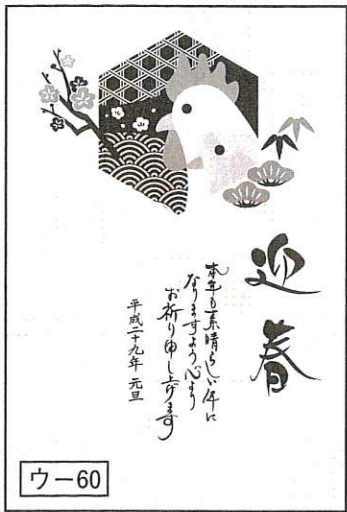 迎春
本年も素晴らしい年に
なりますよう心より
お祈り申し上げます
平成二十九年 元旦
ウー60